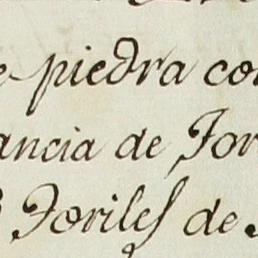 e piedra con
ancia de Tor
Toriles de